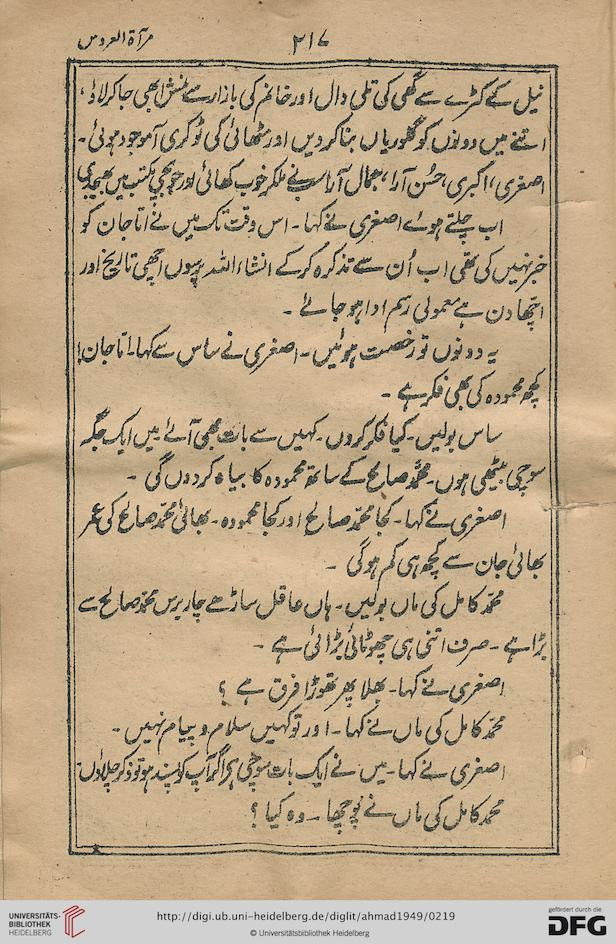 ۲۱۷
مرآۃ العروس
نیل کے کڑے سے گھی کی تلی دال اور خانم کی بازار سے ابھی جا کر لاؤ،
اتنے میں دونوں کو گلوریاں بنا کر دیں اور مٹھائی کی ٹوکری آموجود ہوئی۔
اصغری، اکبری، حُسن آرا، جمال آرا سب نے ملکر خوب کھائی اور جو بچی مکتب میں بھیجدی
اب چلتے ہوئے اصغری نے کہا۔ اس وقت تک میں نے اماجان کو
خبر نہیں کی تھی اب اُن سے تذکرہ کرکے انشاءاللہ پرسوں اچھی تاریخ اور
اچھا دن ہے معمولی رسم ادا ہو جائے۔
یہ دونوں تو رخصت ہوئیں۔ اصغری نے ساس سے کہا۔ اماجان!
کچھ محمودہ کی بھی فکر ہے۔
ساس بولیں۔ کیا فکر کروں۔ کہیں سے بات بھی آئے۔ میں ایک جگہ
سوچی بیٹھی ہوں۔ محمد صالح کے ساتھ محمودہ کا بیاہ کر دوں گی۔
اصغری نے کہا۔ کجا محمد صالح اور کجا محمودہ۔ بھائی محمد صالح کی عمر
بھائی جان سے کچھ ہی کم ہوگی۔
محمد کامل کی ماں بولیں۔ ہاں عاقل ساڑھے چار برس محمد صالح سے
بڑا ہے۔ صرف اتنی ہی چھوٹائی بڑائی ہے۔
اصغری نے کہا۔ بھلا پھر تھوڑا فرق ہے ؟
محمد کامل کی ماں نے کہا۔ اور تو کہیں سلام و پیام نہیں۔
اصغری نے کہا۔ میں نے ایک بات سوچی ہے اگر آپ کو پسند ہو تو ذکر چلاؤں
محمد کامل کی ماں نے پوچھا۔ وہ کیا ؟
UNIVERSITÄTS-
BIBLIOTHEK
HEIDELBERG
http://digi.ub.uni-heidelberg.de/diglit/ahmad1949/0219
© Universitätsbibliothek Heidelberg
gefördert durch die
DFG